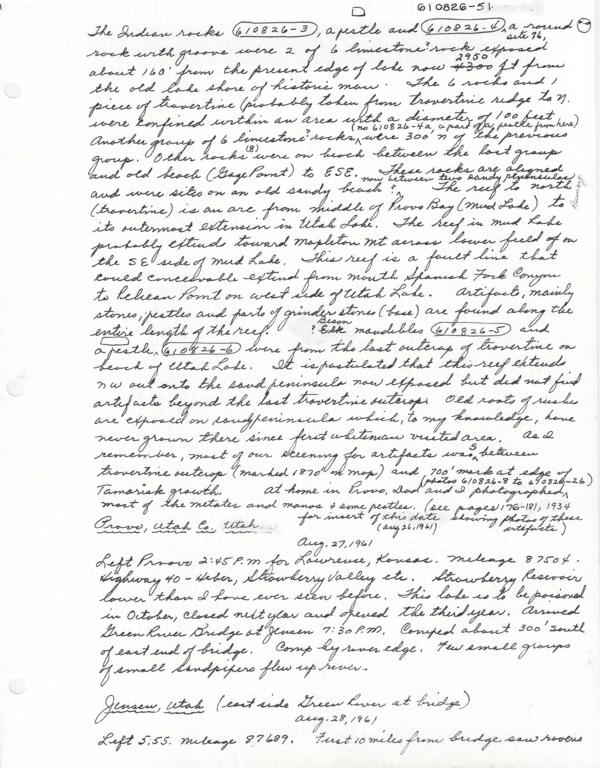 610826-51
The Indian rocks (610826-3), a pestle and (610826-4), a round
site 76,
rock with groove were 2 of 6 limestone? rock exposed
about 160' from the present edge of lake now 2950 ft from
the old lake shore of historic man. The 6 rocks and 1
piece of travertine (probably taken from travertine ridge to N.
were confined within an area with a diameter of 100 feet.
(no 610826-4a, a part of a pestle from here)
Another group of 6 limestone? rocks, were 300' n of the previous
group. Other rocks (B) were on beach between the last group
and old beach (Gage Point) to ESE. These rocks are aligned
now between two sandy peninsulas
and were sites on an old sandy beach? The reef to north
(travertine) is an arc from middle of Provo Bay (Mud Lake) to
its outermost extension in Utah Lake. The reef in mud Lake
probably extends toward Mapleton Mt across lower field of on
the SE side of Mud Lake. This reef is a fault line that
could conceivable extend from mouth Spanish Fork Canyon
to Pelican Point on west side of Utah Lake. Artifacts, mainly
stones, pestles and parts of grinder stones (base) are found along the
entire length of the reef. ? Bison Elk mandebles (610826-5) and
a pestle, (610826-6) were from the last outcrop of travertine on
beach of Utah Lake. It is postulated that this reef extends
nw out onto the sand peninsula now exposed but did not find
artifacts beyond the last travertine outcrop. Old roots of rushes
are exposed on sand peninsula which, to my knowledge, have
never grown there since first whiteman visited area. As I
remember, most of our screening for artifacts was between
travertine outcrop (marked 1870' on map) and 700' mark at edge of
Tamarisk growth. At home in Provo, Dad and I photographed,
(photos 610826-8 to 610826-26)
most of the metates and manos & some pestles. (see pages 176-181, 1934
for insert of this date showing photos of these
(aug 26, 1961) artifacts)
Provo, Utah Co. Utah
Aug. 27, 1961
Left Provo 2:45 P.M for Lawrence, Kansas. Mileage 87504.
Highway 40 - Heber, Strawberry Valley etc. Strawberry Resevoir
lower than I have ever seen before. This lake is to be poisoned
in October, closed next year and opened the third year. Arrived
Green River Bridge at Jensen 7:30 P.M. Camped about 300' south
of east end of bridge. Camp by river edge. Few small groups
of small Sandpipers flew up river.
Jensen, Utah (east side Green River at bridge)
Aug. 28, 1961
Left 5:55. Mileage 87689. First 10 miles from bridge saw ravens